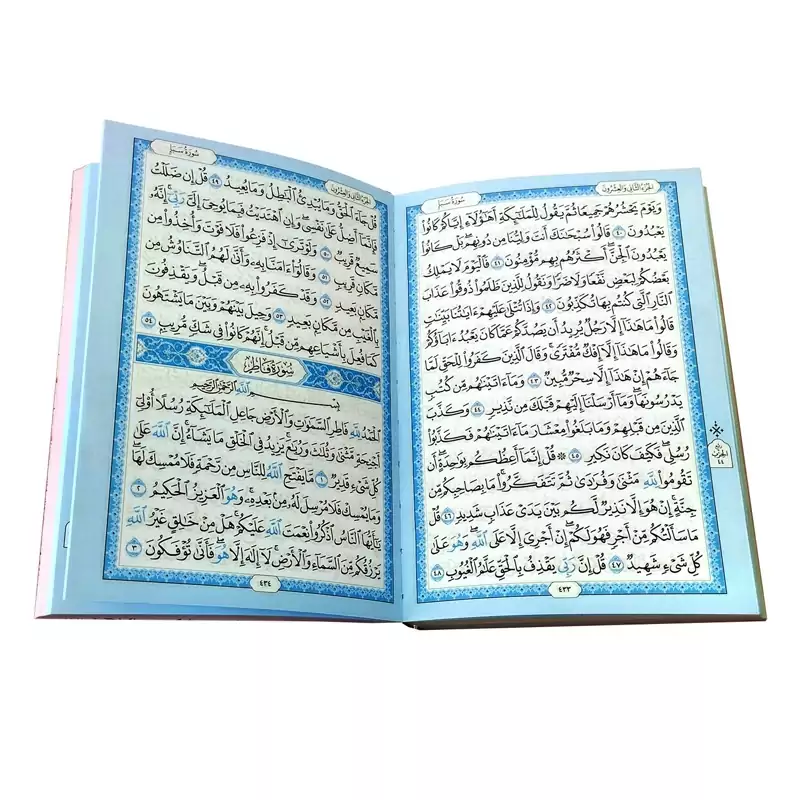 الجزء الثاني والعشرون
سورة سبإ
وَيَوْمَ يَحْشُرُهُمْ جَمِيعًا ثُمَّ يَقُولُ لِلْمَلَٰٓئِكَةِ أَهَٰٓؤُلَآءِ إِيَّاكُمْ كَانُوا۟
يَعْبُدُونَ ٤٠ قَالُوا۟ سُبْحَٰنَكَ أَنتَ وَلِيُّنَا مِن دُونِهِم بَلْ كَانُوا۟
يَعْبُدُونَ ٱلْجِنَّ أَكْثَرُهُم بِهِم مُّؤْمِنُونَ ٤١ فَٱلْيَوْمَ لَا يَمْلِكُ
بَعْضُكُمْ لِبَعْضٍ نَّفْعًا وَلَا ضَرًّا وَنَقُولُ لِلَّذِينَ ظَلَمُوا۟ ذُوقُوا۟ عَذَابَ
ٱلنَّارِ ٱلَّتِى كُنتُم بِهَا تُكَذِّبُونَ ٤٢ وَإِذَا تُتْلَىٰ عَلَيْهِمْ ءَايَٰتُنَا بَيِّنَٰتٍ
قَالُوا۟ مَا هَٰذَآ إِلَّا رَجُلٌ يُرِيدُ أَن يَصُدَّكُمْ عَمَّا كَانَ يَعْبُدُ ءَابَآؤُكُمْ
وَقَالُوا۟ مَا هَٰذَآ إِلَّآ إِفْكٌ مُّفْتَرًى وَقَالَ ٱلَّذِينَ كَفَرُوا۟ لِلْحَقِّ لَمَّا
جَآءَهُمْ إِنْ هَٰذَآ إِلَّا سِحْرٌ مُّبِينٌ ٤٣ وَمَآ ءَاتَيْنَٰهُم مِّن كُتُبٍ
يَدْرُسُونَهَا وَمَآ أَرْسَلْنَآ إِلَيْهِمْ قَبْلَكَ مِن نَّذِيرٍ ٤٤ وَكَذَّبَ
ٱلَّذِينَ مِن قَبْلِهِمْ وَمَا بَلَغُوا۟ مِعْشَارَ مَآ ءَاتَيْنَٰهُمْ فَكَذَّبُوا۟
رُسُلِى فَكَيْفَ كَانَ نَكِيرِ ٤٥ ۞ قُلْ إِنَّمَآ أَعِظُكُم بِوَٰحِدَةٍ أَن
تَقُومُوا۟ لِلَّهِ مَثْنَىٰ وَفُرَٰدَىٰ ثُمَّ تَتَفَكَّرُوا۟ مَا بِصَاحِبِكُم مِّن
جِنَّةٍ إِنْ هُوَ إِلَّا نَذِيرٌ لَّكُم بَيْنَ يَدَىْ عَذَابٍ شَدِيدٍ ٤٦ قُلْ
مَا سَأَلْتُكُم مِّنْ أَجْرٍ فَهُوَ لَكُمْ إِنْ أَجْرِىَ إِلَّا عَلَى ٱللَّهِ وَهُوَ عَلَىٰ
كُلِّ شَىْءٍ شَهِيدٌ ٤٧ قُلْ إِنَّ رَبِّى يَقْذِفُ بِٱلْحَقِّ عَلَّٰمُ ٱلْغُيُوبِ ٤٨
ربع
الحزب
٤٤
٤٣٣
الجزء الثاني والعشرون
سورة سبإ
قُلْ جَآءَ ٱلْحَقُّ وَمَا يُبْدِئُ ٱلْبَٰطِلُ وَمَا يُعِيدُ ٤٩ قُلْ إِن ضَلَلْتُ
فَإِنَّمَآ أَضِلُّ عَلَىٰ نَفْسِى وَإِنِ ٱهْتَدَيْتُ فَبِمَا يُوحِىٓ إِلَىَّ رَبِّىٓ إِنَّهُۥ
سَمِيعٌ قَرِيبٌ ٥٠ وَلَوْ تَرَىٰٓ إِذْ فَزِعُوا۟ فَلَا فَوْتَ وَأُخِذُوا۟ مِن
مَّكَانٍ قَرِيبٍ ٥١ وَقَالُوٓا۟ ءَامَنَّا بِهِۦ وَأَنَّىٰ لَهُمُ ٱلتَّنَاوُشُ مِن
مَّكَانٍۭ بَعِيدٍ ٥٢ وَقَدْ كَفَرُوا۟ بِهِۦ مِن قَبْلُ وَيَقْذِفُونَ
بِٱلْغَيْبِ مِن مَّكَانٍۭ بَعِيدٍ ٥٣ وَحِيلَ بَيْنَهُمْ وَبَيْنَ مَا يَشْتَهُونَ
كَمَا فُعِلَ بِأَشْيَاعِهِم مِّن قَبْلُ إِنَّهُمْ كَانُوا۟ فِى شَكٍّ مُّرِيبٍۭ ٥٤
سُورَةُ فَاطِرٍ
بِسْمِ ٱللَّهِ ٱلرَّحْمَٰنِ ٱلرَّحِيمِ
ٱلْحَمْدُ لِلَّهِ فَاطِرِ ٱلسَّمَٰوَٰتِ وَٱلْأَرْضِ جَاعِلِ ٱلْمَلَٰٓئِكَةِ رُسُلًا أُو۟لِىٓ
أَجْنِحَةٍ مَّثْنَىٰ وَثُلَٰثَ وَرُبَٰعَ يَزِيدُ فِى ٱلْخَلْقِ مَا يَشَآءُ إِنَّ ٱللَّهَ عَلَىٰ
كُلِّ شَىْءٍ قَدِيرٌ ١ مَّا يَفْتَحِ ٱللَّهُ لِلنَّاسِ مِن رَّحْمَةٍ فَلَا مُمْسِكَ لَهَا
وَمَا يُمْسِكْ فَلَا مُرْسِلَ لَهُۥ مِنۢ بَعْدِهِۦ وَهُوَ ٱلْعَزِيزُ ٱلْحَكِيمُ ٢
يَٰٓأَيُّهَا ٱلنَّاسُ ٱذْكُرُوا۟ نِعْمَتَ ٱللَّهِ عَلَيْكُمْ هَلْ مِنْ خَٰلِقٍ غَيْرُ ٱللَّهِ
يَرْزُقُكُم مِّنَ ٱلسَّمَآءِ وَٱلْأَرْضِ لَآ إِلَٰهَ إِلَّا هُوَ فَأَنَّىٰ تُؤْفَكُونَ ٣
٤٣٤